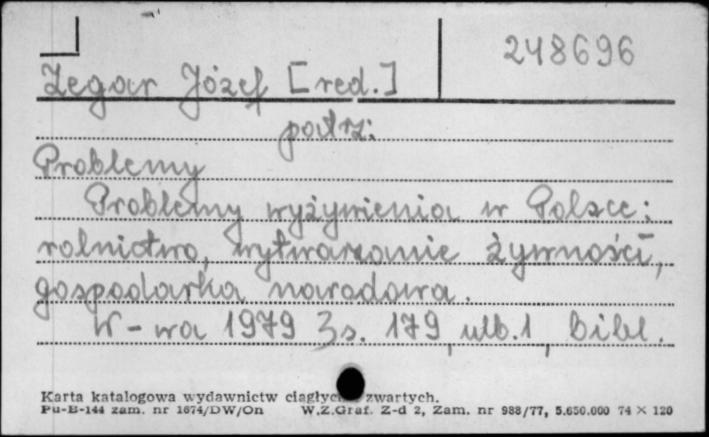 248696
Zegar Józef [red.]
patrz:
Problemy
Problemy wyżywienia w Polsce:
rolnictwo, wytwarzanie żywności,
gospodarka narodowa.
W-wa 1979 s. 179, ulb. 1, bibl.
Karta katalogowa wydawnictw ciągłych zwartych.
Pu-B-144 zam. nr 1674/DW/On W.Z.Graf. Z-d 2, Zam. nr 988/77, 5.650.000 74 × 120